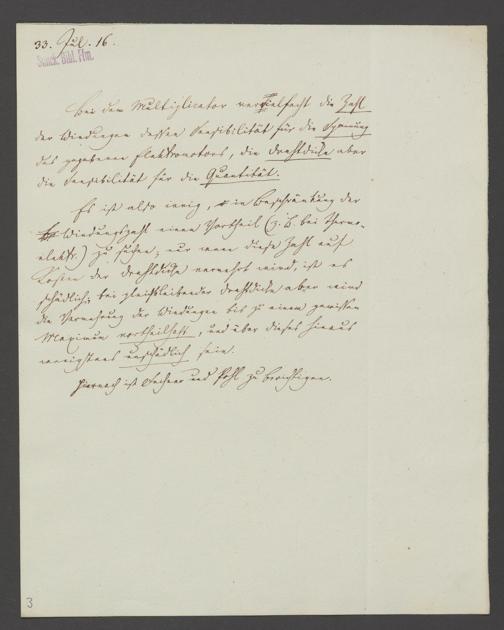 33. Jul. 16.
Senck. Bibl. Ffm.
Bei dem Multiplicator vervielfacht die Zahl
der Windungen dessen Sensibilität für die Spannung
des gegebenen Elektromotors, die Drahtdicke aber
die Sensibilität für die Quantität.
Es ist also irrig, in Beschränkung der
Windungszahl einen Vortheil (z. B. bei Thermo-
elektr.) zu suchen; nur wenn diese Zahl auf
Kosten der Drahtdicke vermehrt wird, ist es
schädlich; bei gleichbleibender Drahtdicke aber wird
die Vermehrung der Windungen bis zu einem gewissen
Maximum vortheilhaft, und über dieses hinaus
wenigstens unschädlich sein.
Hiernach ist Fechner und Pohl zu berichtigen.
3